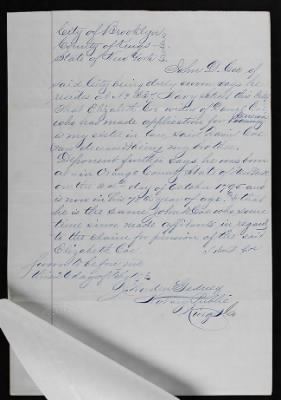 City of Brooklyn
County of Kings
State of New York
John D. Coe of
said City being duly sworn says he
resides at No
That Elizabeth Coe widow of Daniel Coe
who has made application for Pension
is my sister in law, said Daniel Coe
being my brother.
Deponent further says he was born
in Orange County State of New York
on the day of October 1795 and
is now in his year of age, & that
he is the same John D. Coe who some
time since made affidavits in regard
to the claim for pension of the said
Elizabeth Coe
John D. Coe
Sworn to before me
this day of
Gedney
Notary Public
Kings Co